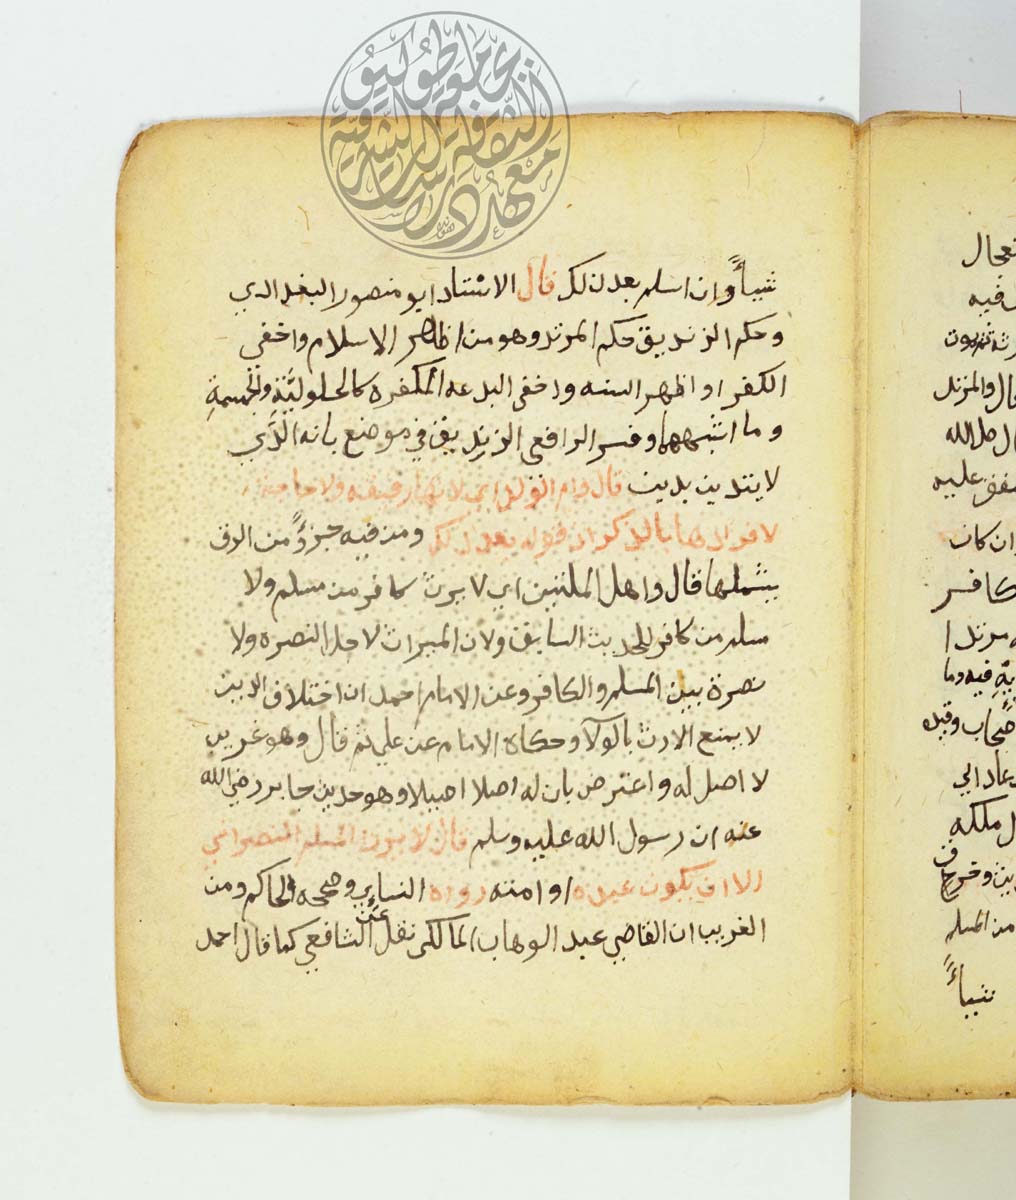 شيأً وان اسلم بعد ذلك قال الاستاد ابو منصور البغدادي
وحكم الزنديق حكم المرتد وهو من اظهر الاسلام واخفى
الكفر او اظهر السنه واخفى البدعه المكفرة كالحلوليَّةِ والمجسمةِ
وما اشبههما وفسر الرافعي الزنديق في موضع بانه الذَّي
لا يتدين بدين قال
لافرادها بالذكر اذ قوله بعد ذلك ومن فيه جزؤٌ من الرق
يشملها قال واهل الملتين اي لا يرث كافر من مسلم ولا
مسلم من كافر للحديث السابق ولان الميراث لاجل النصره ولا
نصرة بين المسلم والكافر وعن الامام احمد ان اختلاف الدين
لا يمنع الارث بالولآ وحكاه الامام عن علي ثم قال وهو غريب
لا اصل له واعترض بان له اصلا اصيلا وهو حديث جابر رضي الله
عنه ان رسول الله عليه وسلم قال لا يرث المسلم النصراني
الا ان يكون عبده او امته رواه النساءي وصححه الحاكم ومن
الغريب ان القاضي عبد الوهاب المالكي نقل عن الشافعي كما قال احمد
معهد دراسات الثقافة الشرقية جامعة طوكيو
فيه
والمرتد
صلى الله
عليه
وان كان
كافر
مرتد ا
فيه وما
ملكه
من المسلم
شيأً